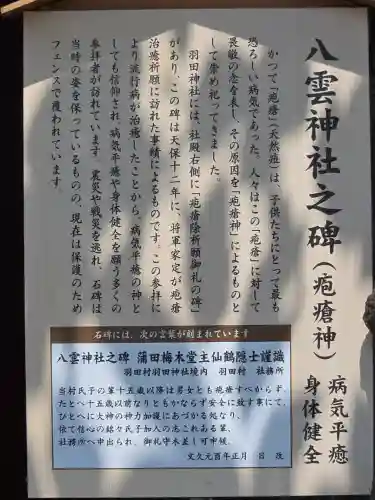 八雲神社之碑（疱瘡神）
病気平癒
身体健全
かつて「疱瘡」（天然痘）は、子供たちにとって最も
恐ろしい病気であった。人々はこの「疱瘡」に対して
畏敬の念を表し、その原因を「疱瘡神」によるものと
して崇め祀ってきました。
羽田神社には、社殿右側に「疱瘡除祈願御礼の碑」
があり、この碑は天保十二年に、将軍家定が疱瘡
治癒祈願に訪れた事績によるものです。この参拝に
より流行病が治癒したことから、病気平癒の神と
しても信仰され、病気平癒や身体健全を願う多くの
参拝者が訪れています。震災や戦災を逃れ、石碑は
当時の姿を保っているものの、現在は保護のため
フェンスで覆われています。
石碑には、次の言葉が刻まれています
八雲神社之碑 蒲田梅木堂主仙鶴隠士謹識
羽田村羽田神社境内 羽田村 社務所
当村氏子の輩十五歳以降は男女とも疱瘡すべからず、
たとへ十五歳以前なりともかならず安全に致す事にて、
ひとへに大神の神力加護にあづかる処なり、
依て信心の銘々氏子加入の志これある輩、
社務所へ申出られ、御札守木差し可申候、
文久元酉年正月 日 改